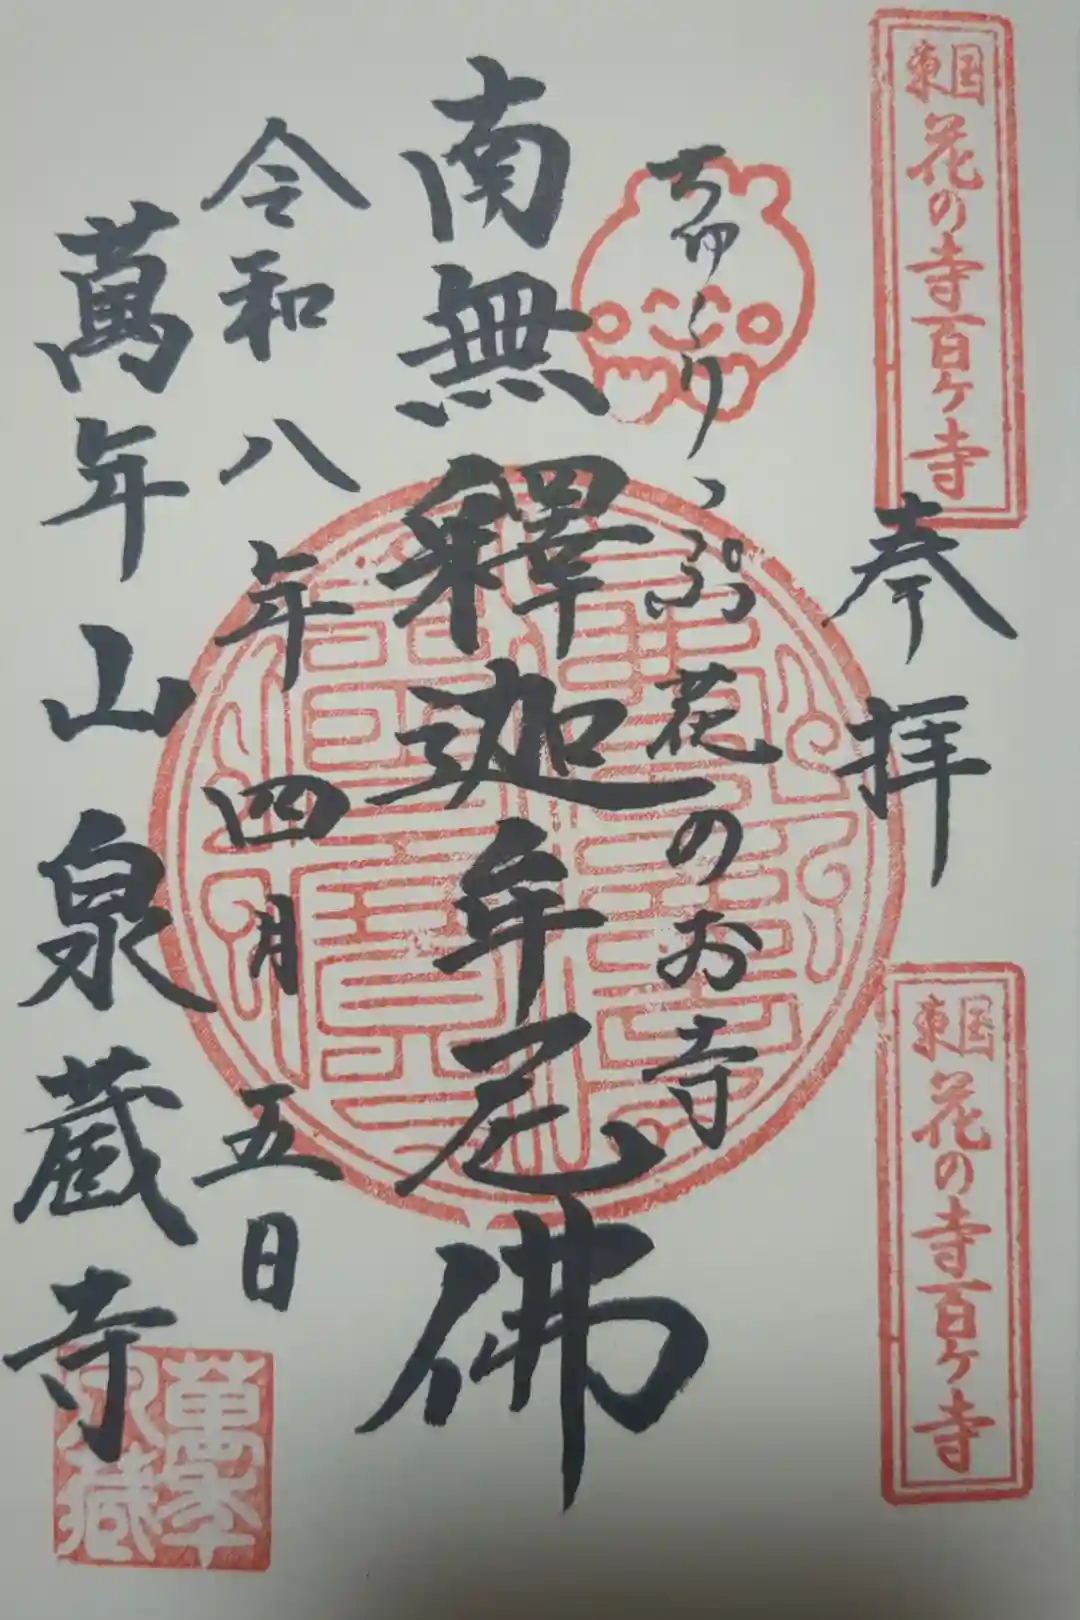 東国花の寺百ヶ寺
奉拝
東国花の寺百ヶ寺
ちゅーりっぷ花のお寺
南無釋迦牟尼佛
令和八年四月五日
萬年山泉蔵寺
萬年泉蔵